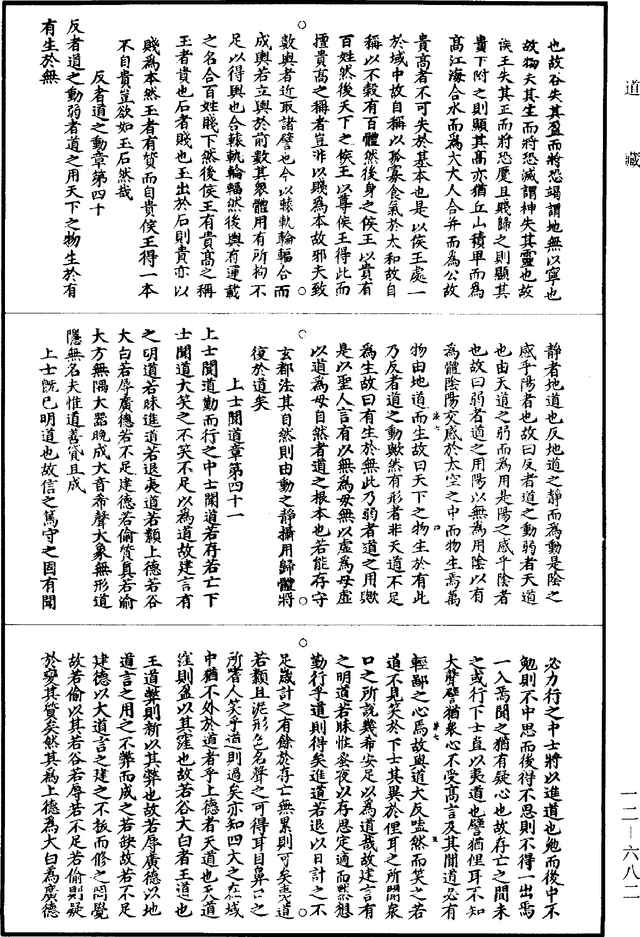 道藏
也故谷失其盈而將恐竭謂地無以寧也
故物夭其生而將恐滅謂神失其靈也故
侯王失其正而將恐蹷且賤歸之則顯其
貴下附之則顯其髙亦猶丘山積卑而為
髙江海合水而為大大人合并而為公故
貴髙者不可失於基本也是以侯王處一
於域中故自稱以孤寡食氣於太和故自
稱以不穀有百體然後身之侯王以貴有
百姓然後天下之侯王以尊侯王得此而
擅貴髙之稱者豈非以賤為本故邪夫致
數輿者近取諸譬也今以轅軌輪輻合而
成輿若立輿於前數其衆體用有所拘不
足以得輿也合轅軌輪輻然後輿有運載
之名合百姓賤下然後侯王有貴髙之稱
玉者貴也石者賤也玉出於石則貴亦以
賤為本然玉者有質而自貴侯王得一本
不自貴豈欲如玉石然哉
反者道之動章第四十
反者道之動弱者道之用天下之物生於有
有生於無
静者地道也反地道之静而為動是隂之
感乎陽者也故曰反者道之動弱者天道
也由天道之弱而為用是陽之感乎隂者
也故曰弱者道之用陽以無為用隂以有
為體隂陽交感於太空之中而物生焉萬
物由地道而生故曰天下之物生於有此
乃反者道之動歟然有形者非天道不足
為生故曰有生於無此乃弱者道之用歟
是以聖人言有以無為母無以虚為母虚
以道為母自然者道之根本也若能存守
玄都法其自然則由動之静攝用歸體將
復於道矣
上士聞道章第四十一
上士聞道勤而行之中士聞道若存若亡下
士聞道大笑之不笑不足以為道故建言有
之明道若昧進道若退夷道若纇上德若谷
大白若辱廣德若不足建德若偷質真若渝
大方無隅大器晚成大音希聲大象無形道
隱無名夫惟道善貸且成
上士旣已明道也故信之篤守之固有聞
必力行之中士將以進道也勉而後中不
勉則不中思而後得不思則不得一出焉
一入焉聞之猶有疑心也故存亡之間未
之或行下士直以夷道也譬猶俚耳不知
大聲譬猶衆心不受髙言及其聞道必有
輕鄙之心焉故與道大反嗑然而笑之若
道不見笑於下士其異於俚耳之所聞衆
口之所說幾希安足以為道哉故建言有
之明道若昧惟宻夜以存思定適而黙想
勤行乎道則得矣進道若退以日計之不
足歲計之有餘於存亡無累則可矣夷道
若纇且泥形色名聲之可得耳目鼻口之
所嗜人笑乎道則過矣亦知四大之在域
中猶不外於道者乎上德者天道也天道
窪則盈以其窪也故若谷大白者王道也
王道弊則新以其弊也故若辱廣德以地
道言之用之不弊而成之若缺故若不足
建德以大道言之建之不拔而修之罔覺
故若偷以其若谷若辱若不足若偷則疑
於變其質矣然其為上德為大白為廣德
一二—六八二